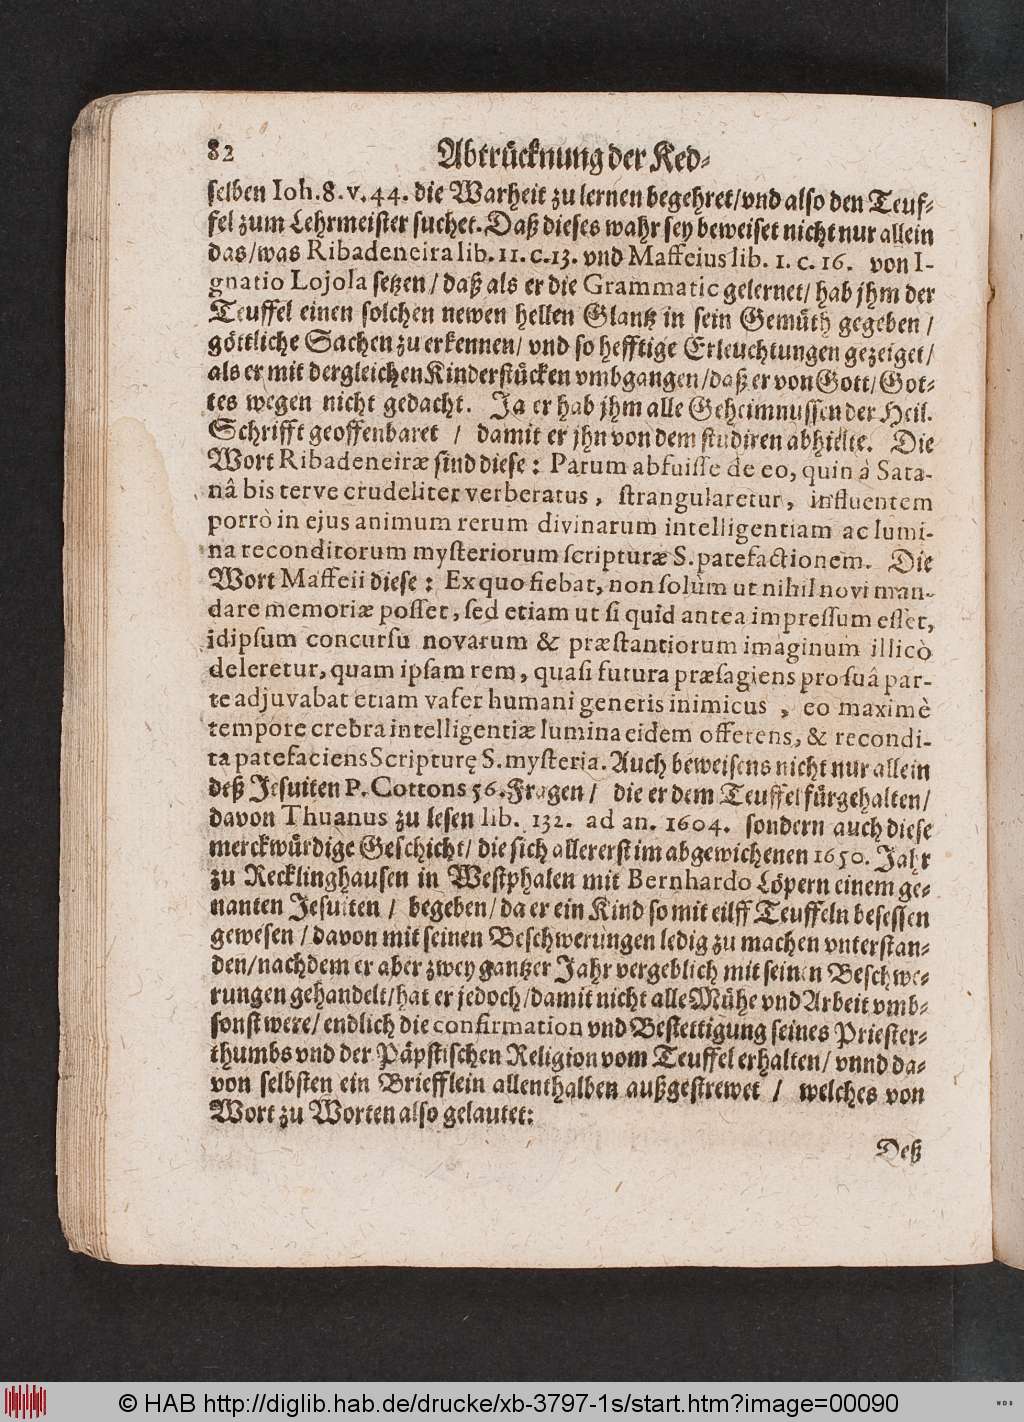 82 Abtrücknung der Ked-
selben Ioh. 8. v. 44. die Warheit zu lernen begehret/vnd also den Teuf-
fel zum Lehrmeister suchet. Daß dieses wahr sey beweiset nicht nur allein
das/was Ribadeneira lib. 11. c. 13. vnd Maffeius lib. 1. c. 16. von I-
gnatio Lojola setzen / daß als er die Grammatic gelernet/ hab jhm der
Teuffel einen solchen newen hellen Glantz in sein Gemüth gegeben /
göttliche Sachen zu erkennen/ vnd so hefftige Erleuchtungen gezeiget/
als er mit dergleichen Kinderstücken vmbgangen/daß er von Gott/Got-
tes wegen nicht gedacht. Ja er hab jhm alle Geheimnussen der Heil.
Schrifft geoffenbaret / damit er jhn von dem studiren abhielte. Die
Wort Ribadeneiræ sind diese: Parum abfuisse de eo, quin à Sata-
nâ bis terve crudeliter verberatus, strangularetur, influentem
porrò in ejus animum rerum divinarum intelligentiam ac lumi-
na reconditorum mysteriorum scripturæ S. patefactionem. Die
Wort Maffeii diese: Ex quo fiebat, non solùm ut nihil novi man-
dare memoriæ posset, sed etiam ut si quid antea impressum esset,
idipsum concursu novarum & præstantiorum imaginum illicò
deleretur, quam ipsam rem, quasi futura præsagiens pro suâ par-
te adjuvabat etiam vafer humani generis inimicus, eo maximè
tempore crebra intelligentiæ lumina eidem offerens, & recondi-
ta patefaciens Scripturę S. mysteria. Auch beweisens nicht nur allein
deß Jesuiten P. Cottons 56. Fragen / die er dem Teuffel fürgehalten/
davon Thuanus zu lesen lib. 132. ad an. 1604. sondern auch diese
merckwürdige Geschicht/ die sich allererst im abgewichenen 1650. Jahr
zu Recklinghausen in Westphalen mit Bernhardo Löpern einem ge-
nanten Jesuiten / begeben/da er ein Kind so mit eilff Teuffeln besessen
gewesen / davon mit seinen Beschwerungen ledig zu machen vnterstan-
den/nachdem er aber zwey gantzer Jahr vergeblich mit seinen Beschwe-
rungen gehandelt/hat er jedoch/damit nicht alle Mühe vnd Arbeit vmb-
sonst were/ endlich die confirmation vnd Bestettigung seines Priester-
thumbs vnd der Päpstischen Religion vom Teuffel erhalten/ vnnd da-
von selbsten ein Briefflein allenthalben außgestrewet / welches von
Wort zu Worten also gelautet:
Deß
© HAB http://diglib.hab.de/drucke/xb-3797-1s/start.htm?image=00090